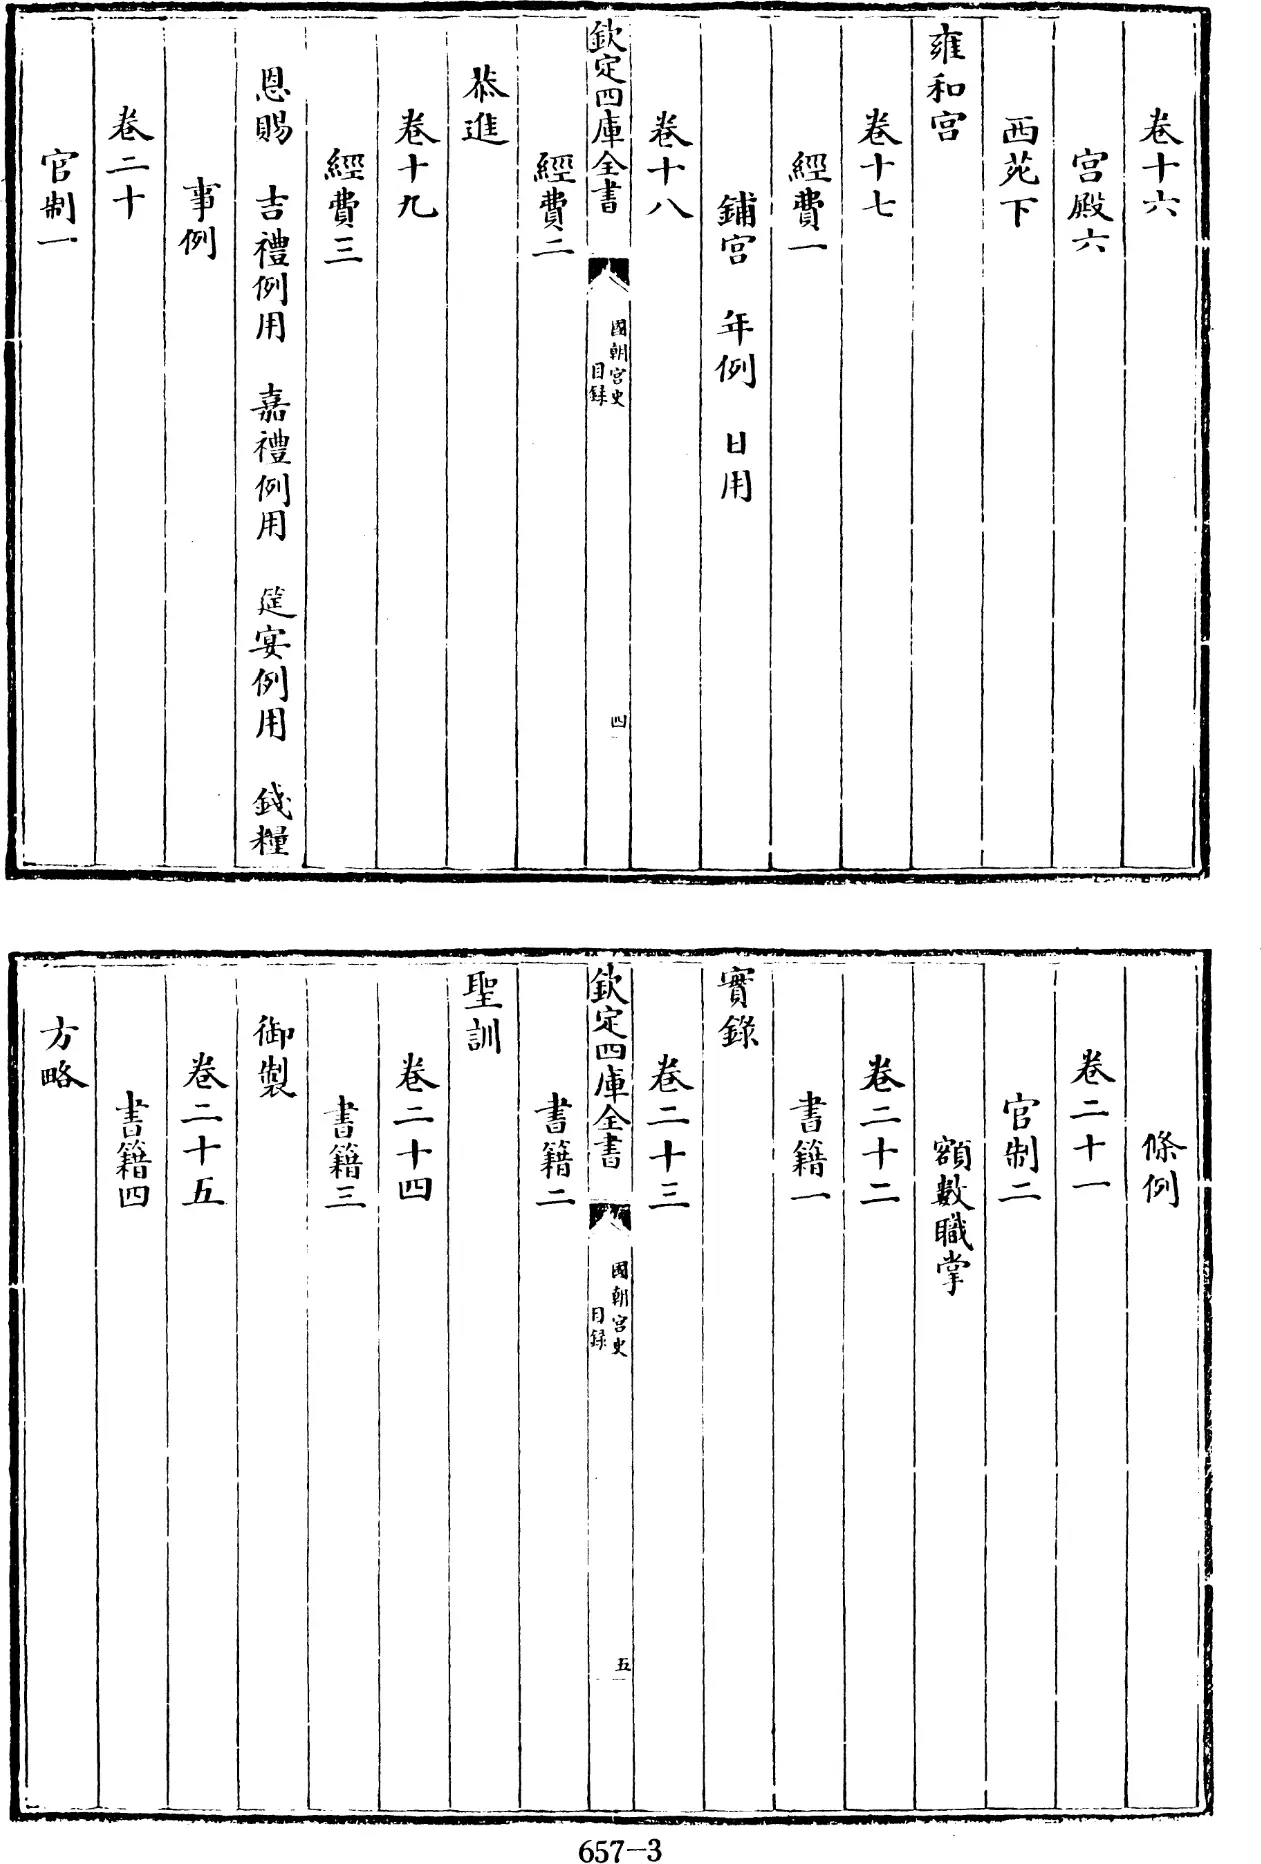 卷十六
宮殿六
西苑下
雍和宮
卷十七
經費一
鋪宮　年例　日用
卷十八
欽定四庫全書
國朝宮史
目録
四
經費二
恭進
卷十九
經費三
恩賜　吉禮例用　嘉禮例用　筵宴例用　錢糧
事例
卷二十
官制一
條例
卷二十一
官制二
額數職掌
卷二十二
書籍一
實錄
卷二十三
欽定四庫全書
國朝宮史
目録
五
書籍二
聖訓
卷二十四
書籍三
御製
卷二十五
書籍四
方略
657-3